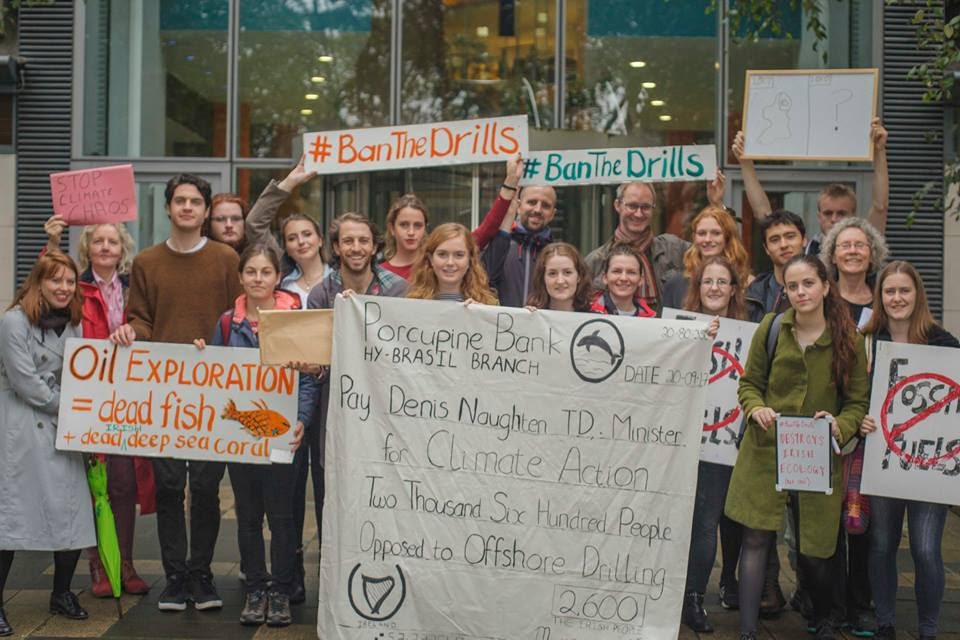 #BanTheDrills
#BanTheDrills
STOP
CLIMATE
CHAOS
Oil EXPLORATION
= dead fish
+ dead IRISH deep sea coral
Porcupine Bank
HY-BRASIL BRANCH
DATE 20-09-17
Pay Denis Naughten TD: Minister
for Climate Action
Two Thousand Six Hundred People
Opposed to Offshore Drilling
2,600
THE IRISH PEOPLE
IRELAND
FUELS
#BanTheDrills
DESTROYS
IRISH
ECOLOGY
FOSSIL
FUELS
?